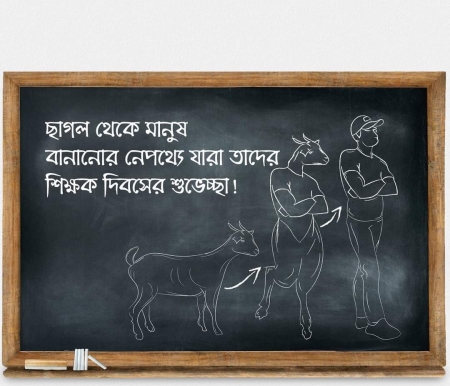 ছাগল থেকে মানুষ
বানানোর নেপথ্যে যারা তাদের
শিক্ষক দিবসের শুভেচ্ছা!